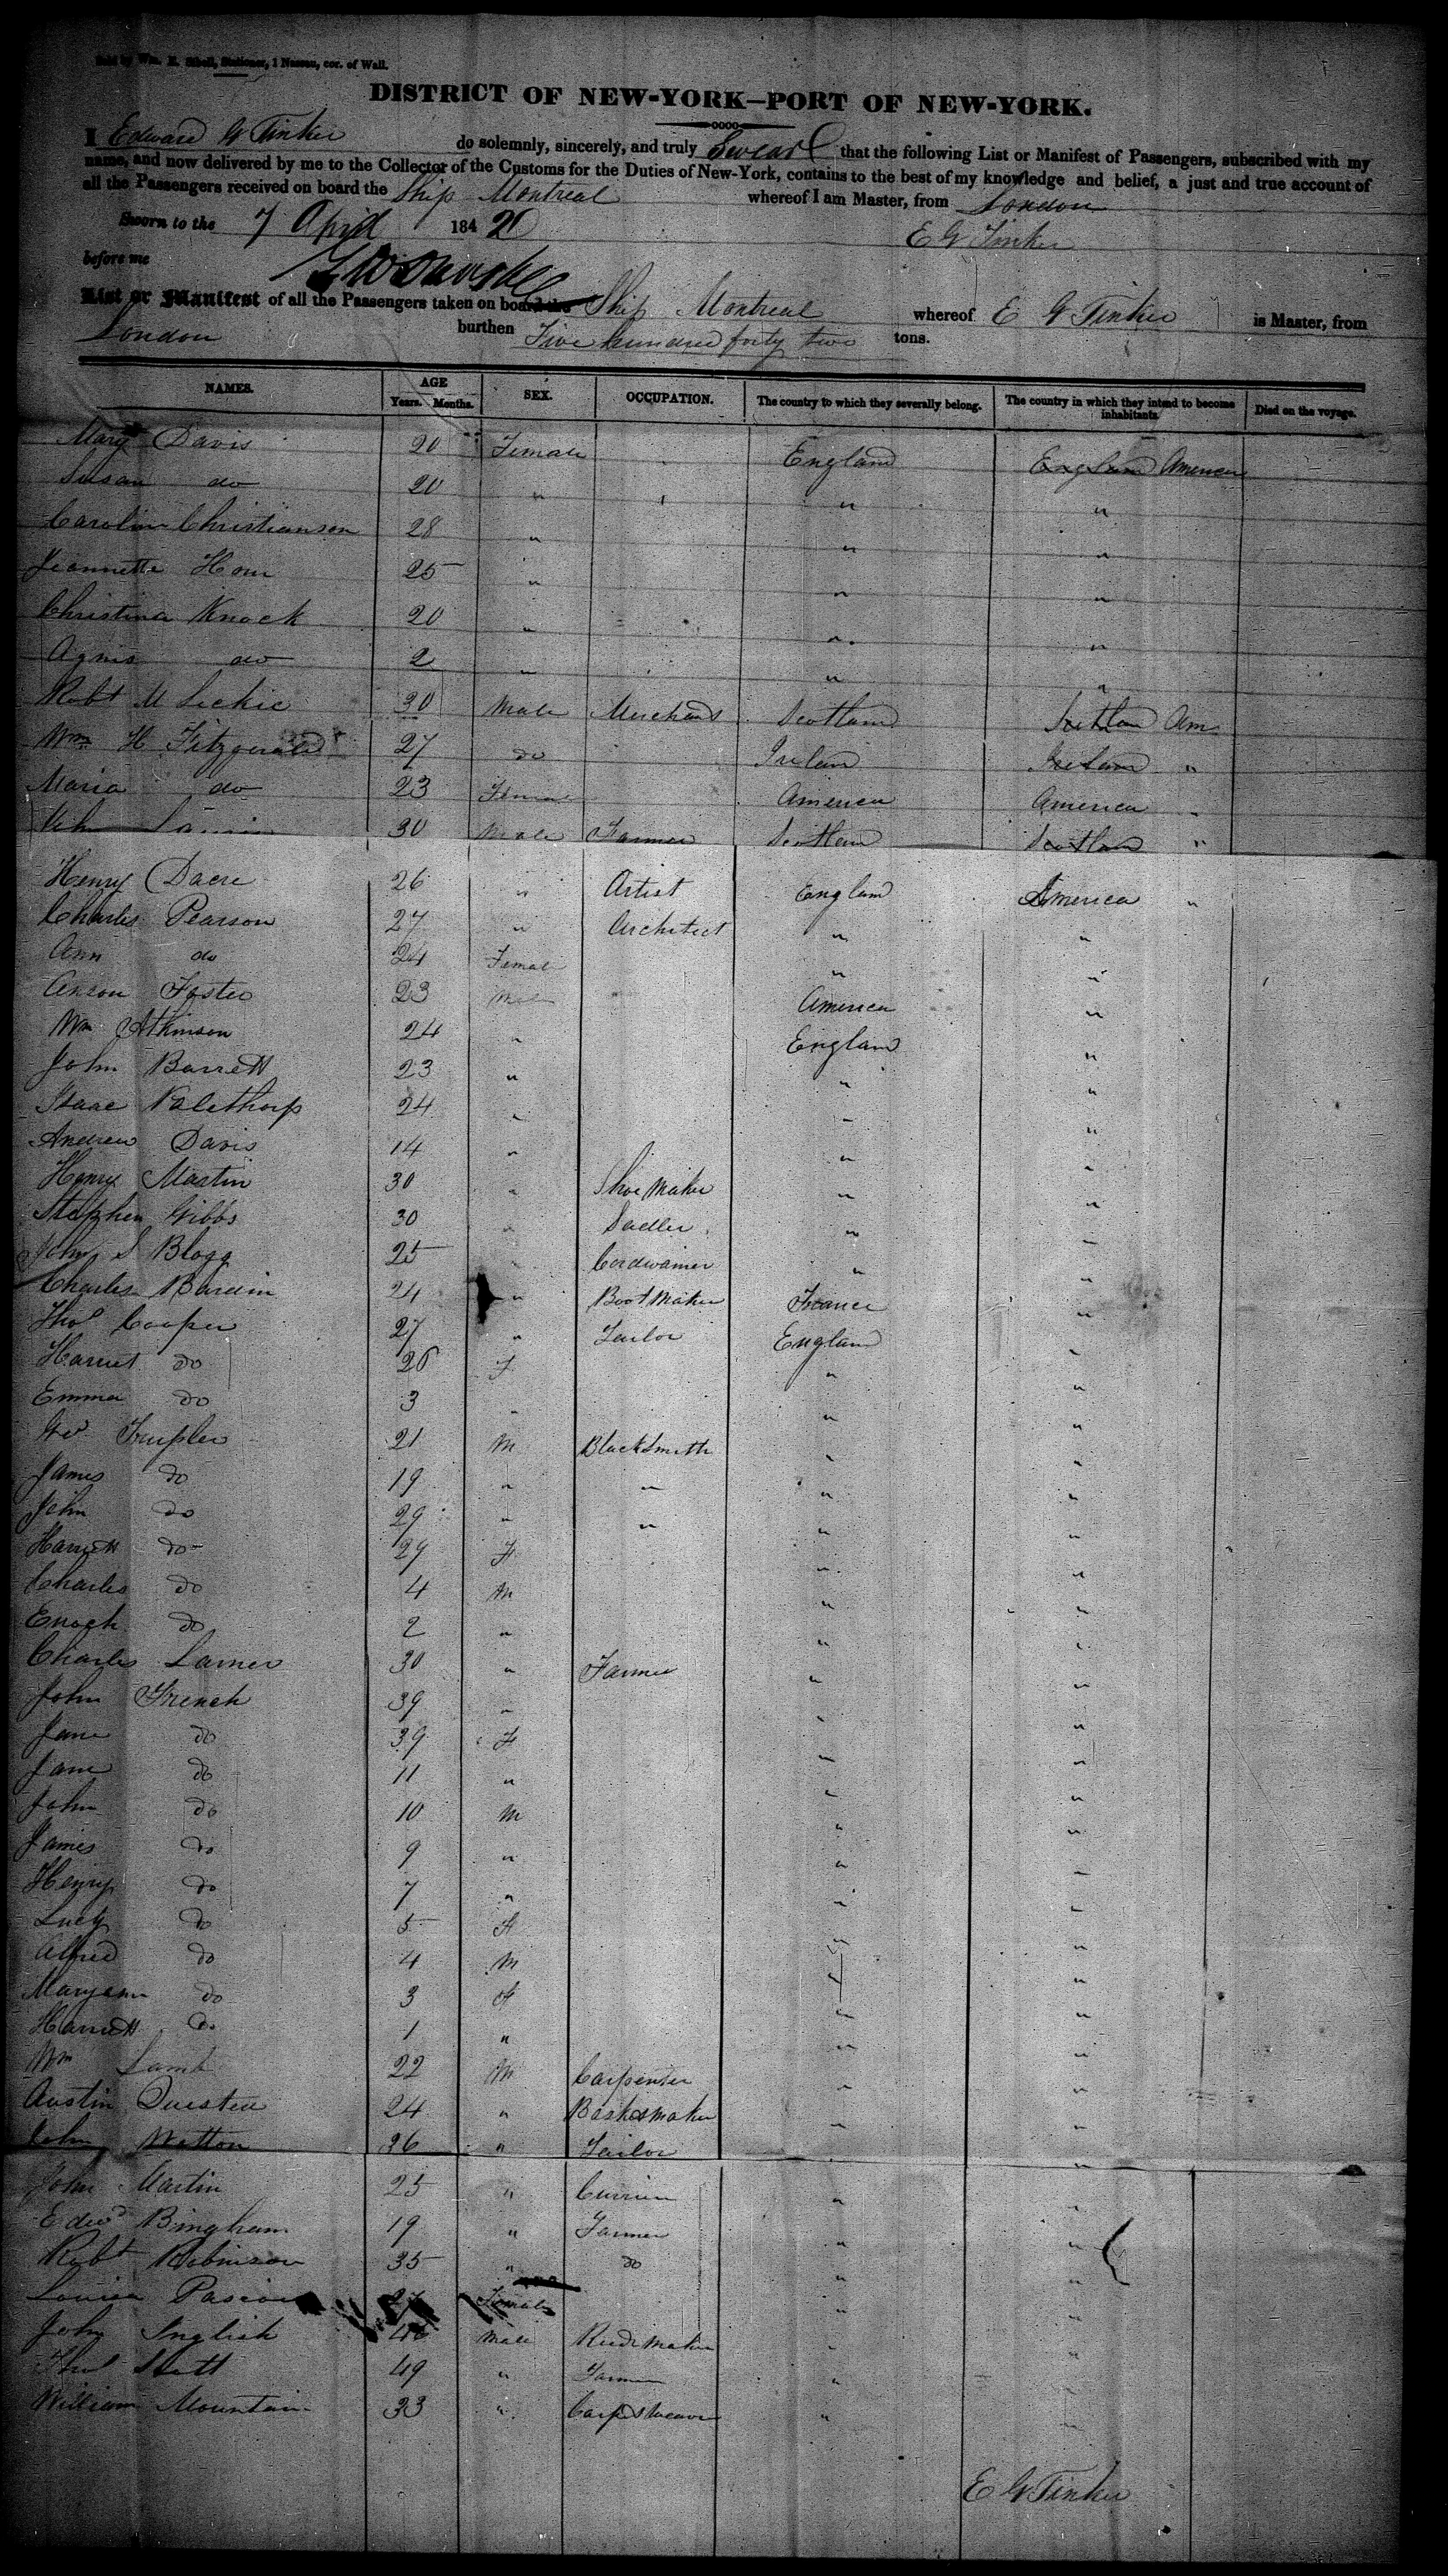 Sold by Wm. E. Sibell, Stationer, 1 Nassau, cor. of Wall.
DISTRICT OF NEW-YORK—PORT OF NEW-YORK.
I Edward G Tinker do solemnly, sincerely, and truly Swear that the following List or Manifest of Passengers, subscribed with my
name, and now delivered by me to the Collector of the Customs for the Duties of New-York, contains to the best of my knowledge and belief, a just and true account of
all the Passengers received on board the Ship Montreal whereof I am Master, from London
Sworn to the 7 April 1842 E G Tinker
before me
List or Manifest of all the Passengers taken on board the Ship Montreal whereof E G Tinker is Master, from
London burthen Five hundred forty two tons.
NAMES. AGE Years. Months. SEX. OCCUPATION. The country to which they severally belong. The country in which they intend to become inhabitants. Died on the voyage.
Mary Davis 20 Female England England America
Susan do 20 " " "
Caroline Christianson 28 " " "
Jeannette Horn 25 " " "
Christina Knock 20 " " "
Agnis do 2 " " "
Robt M Leckie 30 Male Merchand Scotland Scotland Am
Wm H Fitzgerald 27 do Ireland Ireland "
Maria do 23 Female America America
John 30 Male Farmer Scotland Scotland "
Henry Dacre 26 " Artist England America "
Charles Pearson 27 " Architect " "
Ann do 24 Female " "
Anson Foster 23 Male America "
Wm Atkinson 24 " England "
John Barrett 23 " " "
Isaac Kalethorp 24 " " "
Andrew Davis 14 " " "
Henry Martin 30 " Shoe Maker " "
Stephen Gibbs 30 " Sadler " "
John S Blogg 25 " Cordwainer " "
Charles Bardin 24 " Boot Maker France "
Thos Cooper 27 " Tailor England "
Harriet do 26 F " "
Emma do 3 " " "
Geo Trupler 21 M BlackSmith " "
James do 19 " " " "
John do 29 " " " "
Harriett do 29 F " "
Charles do 4 M " "
Enoch do 2 " " "
Charles Larner 30 " Farmer " "
John French 39 " " "
Jane do 39 F " "
Jane do 11 " " "
John do 10 M " "
James do 9 " " "
Henry do 7 " " "
Lucy do 5 F " "
Alfred do 4 M " "
Maryann do 3 F " "
Harriett do 1 " " "
Wm Lamb 22 M Carpenter " "
Austin Quested 24 " Basketmaker " "
John Watton 36 " Tailor " "
John Martin 25 " Currier " "
Edwd Bingham 19 " Farmer " "
Robt Robinson 35 " do " "
Louisa 27 Female " "
John Inglish 46 Male Reedmaker " "
Thos Stett 49 " Farmer " "
William Mountain 33 " Carpet weaver " "
E G Tinker